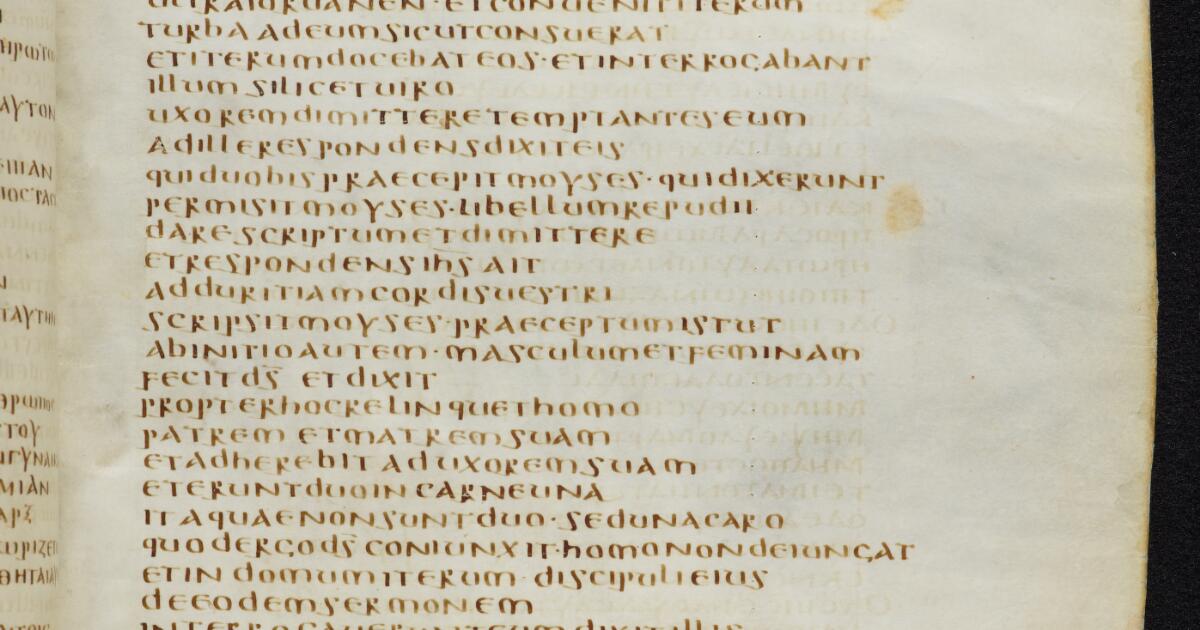 ultraiordanen · etconuenititerum
turba adeumsicutconsuerat
etiterumdocebateos · etinterrogabant
illum silicetuiro
uxoremdimittere temptanteseum
adillerespondensdixiteis
quiduobispraecepitmoyses · quidixerunt
permisitmoyses · libellumrepudii
darescriptumetdimittere
etrespondens ih̅s ait
adduritiamcordisuestri
scripsitmoyses · praeceptumistut
abinitioautem · masculumetfeminam
fecit d̅s̅ etdixit
propterhocrelinquethomo
patrem etmatremsuam
etadherebit aduxoremsuam
eteruntduoin carneuna
itaquaenonsuntduo · sedunacaro
quodergod̅s̅ coniunxit · homonondeiungat
etin domumiterum discipulieius
deeodemsermonem